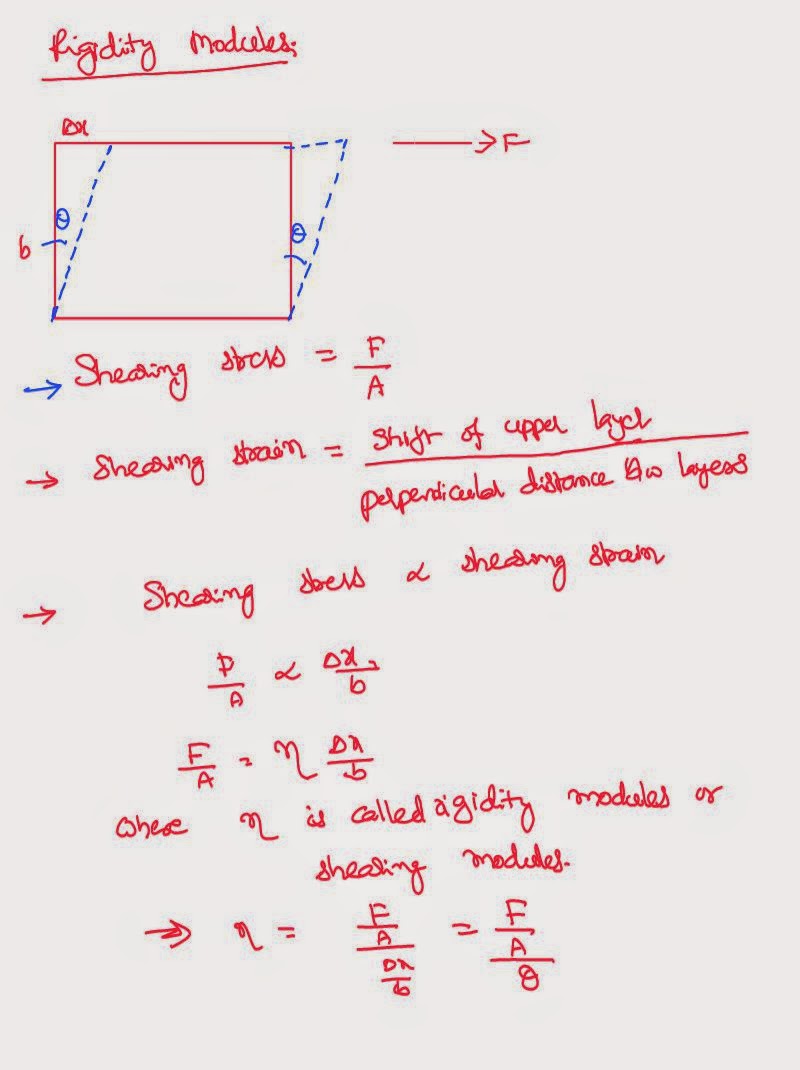 Rigidity Modules:
Δx
→ F
θ
θ
b
→ Shearing stress = F/A
→ Shearing strain = Shift of upper layer / perpendicular distance b/w layers
→ Shearing stress ∝ shearing strain
F/A ∝ Δx/b
F/A = η Δx/b
where η is called rigidity modules or
shearing modules.
⇒ η = (F/A)/(Δx/b) = (F/A)/θ